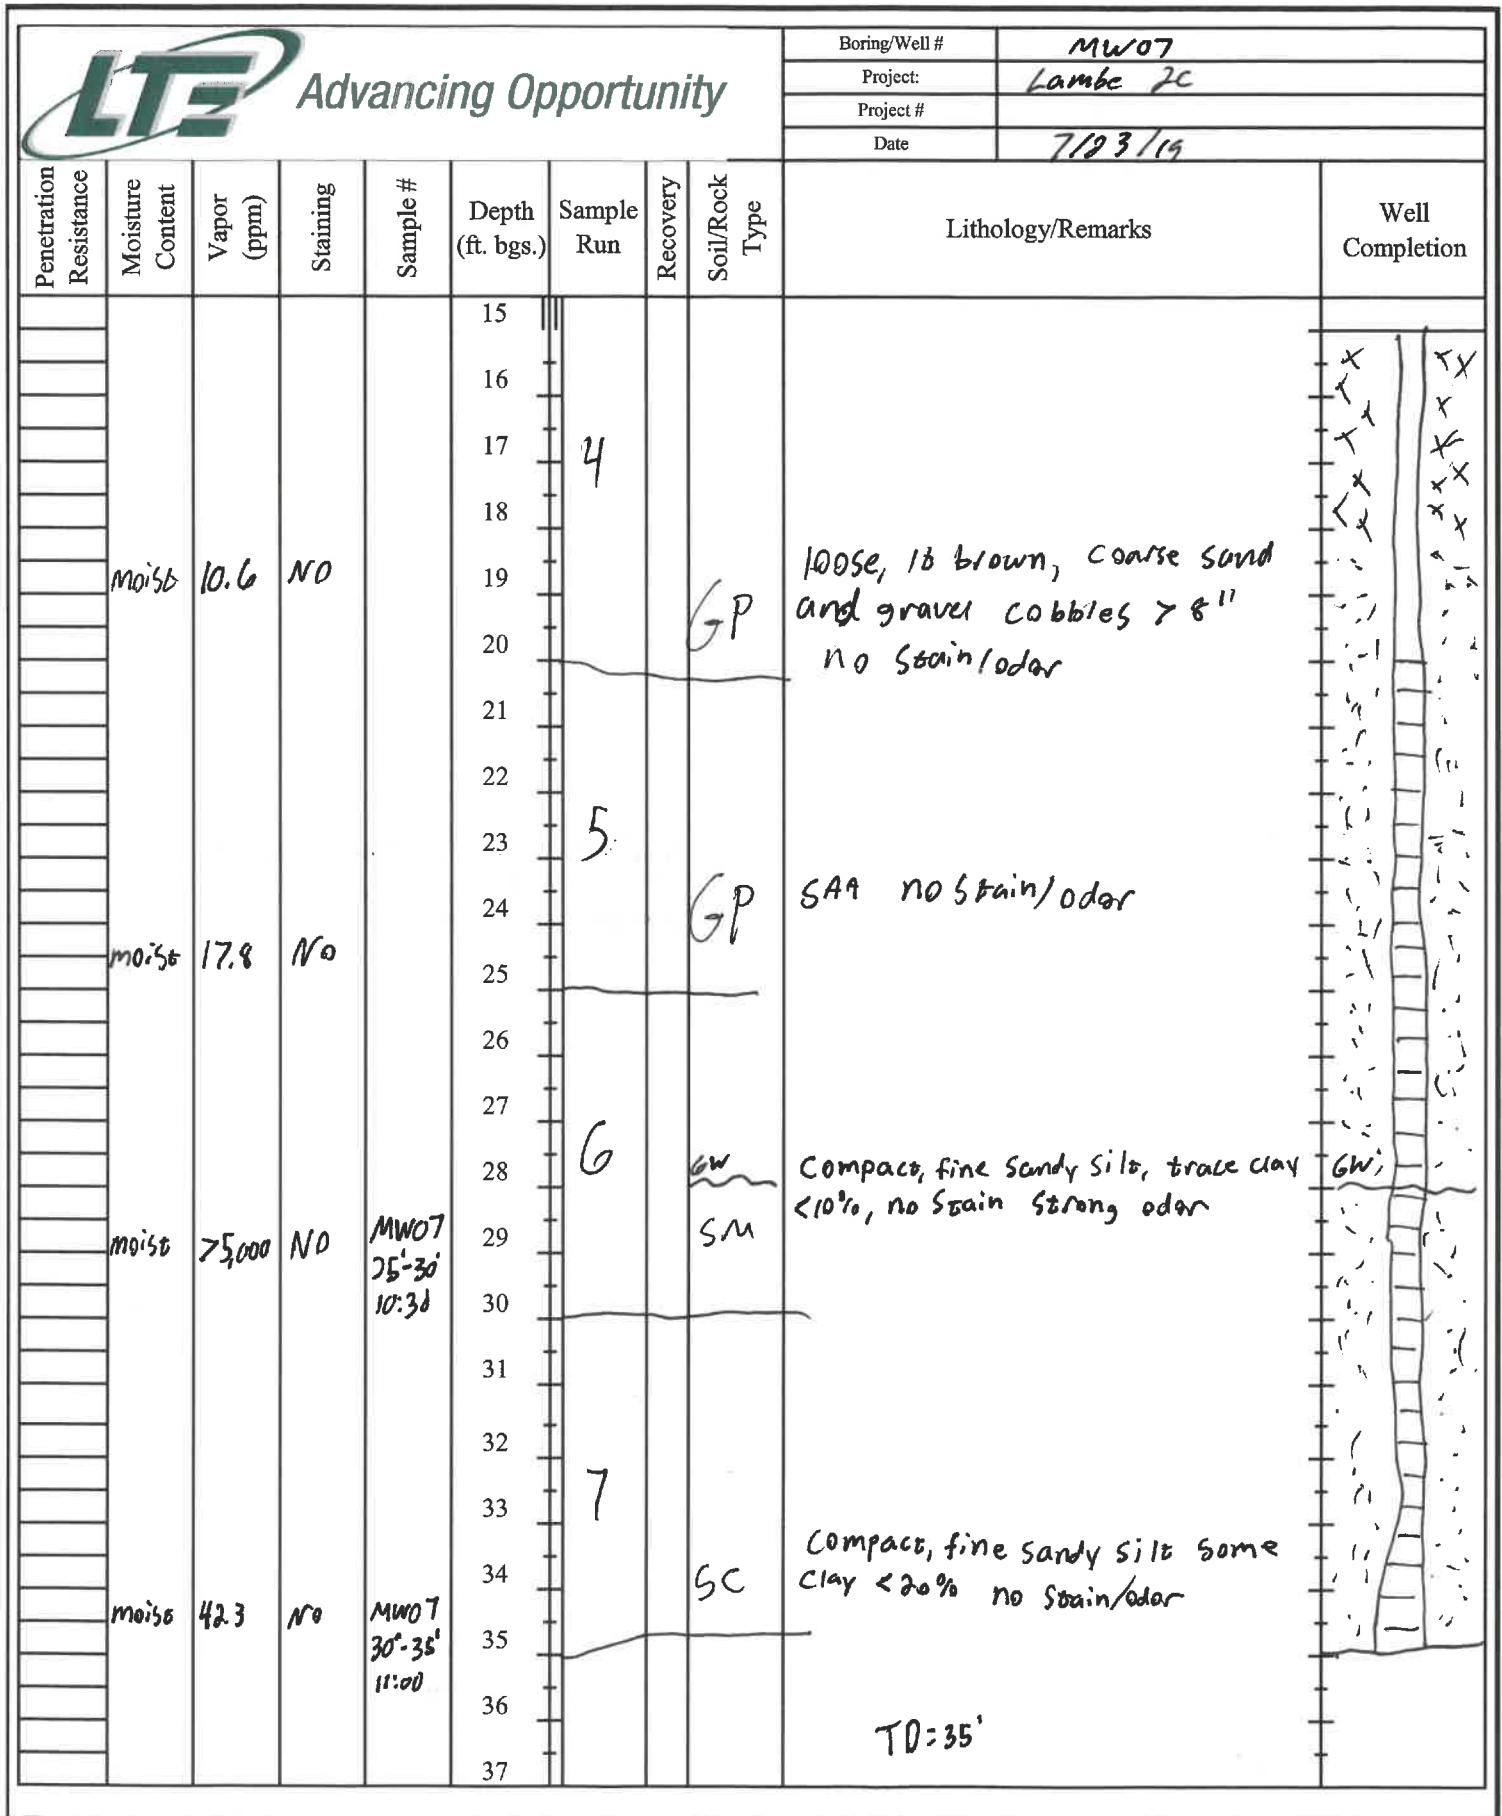 LTE Advancing Opportunity
Boring/Well # MW07
Project: Lambe 2C
Project #
Date 7/23/19
Penetration Resistance
Moisture Content
Vapor (ppm)
Staining
Sample #
Depth (ft. bgs.)
Sample Run
Recovery
Soil/Rock Type
Lithology/Remarks
Well Completion
15
16
17
4
18
moist 10.6 NO 19 GP
loose, lt brown, coarse sand
and gravel cobbles > 8"
no stain/odor
20
21
22
5
23
24 GP
SAA no stain/odor
moist 17.8 NO
25
26
27
6
28 GW
Compact, fine sandy silt, trace clay
<10%, no stain strong odor
GW
moist >5,000 NO
MW07
25'-30'
10:30
29 SM
30
31
32
7
33
34 SC
Compact, fine sandy silt some
clay <20% no stain/odor
moist 42.3 NO
MW07
30'-35'
11:00
35
36
TD=35'
37